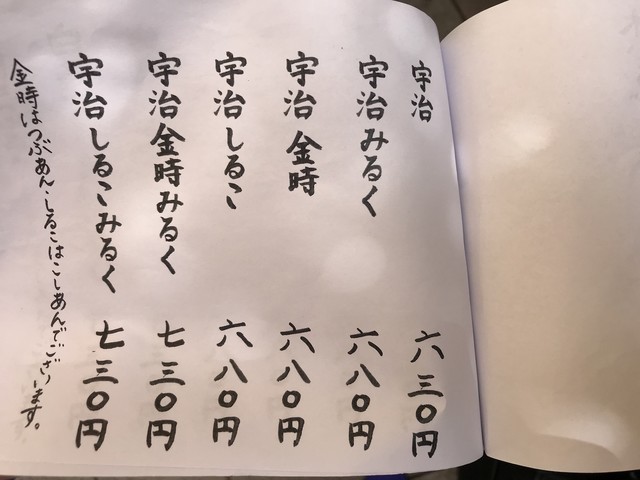 宇治 六三〇円
宇治みるく 六八〇円
宇治金時 六八〇円
宇治しるこ 六八〇円
宇治金時みるく 七三〇円
宇治しるこみるく 七三〇円
金時はつぶあん・しるこはこしあんでございます。